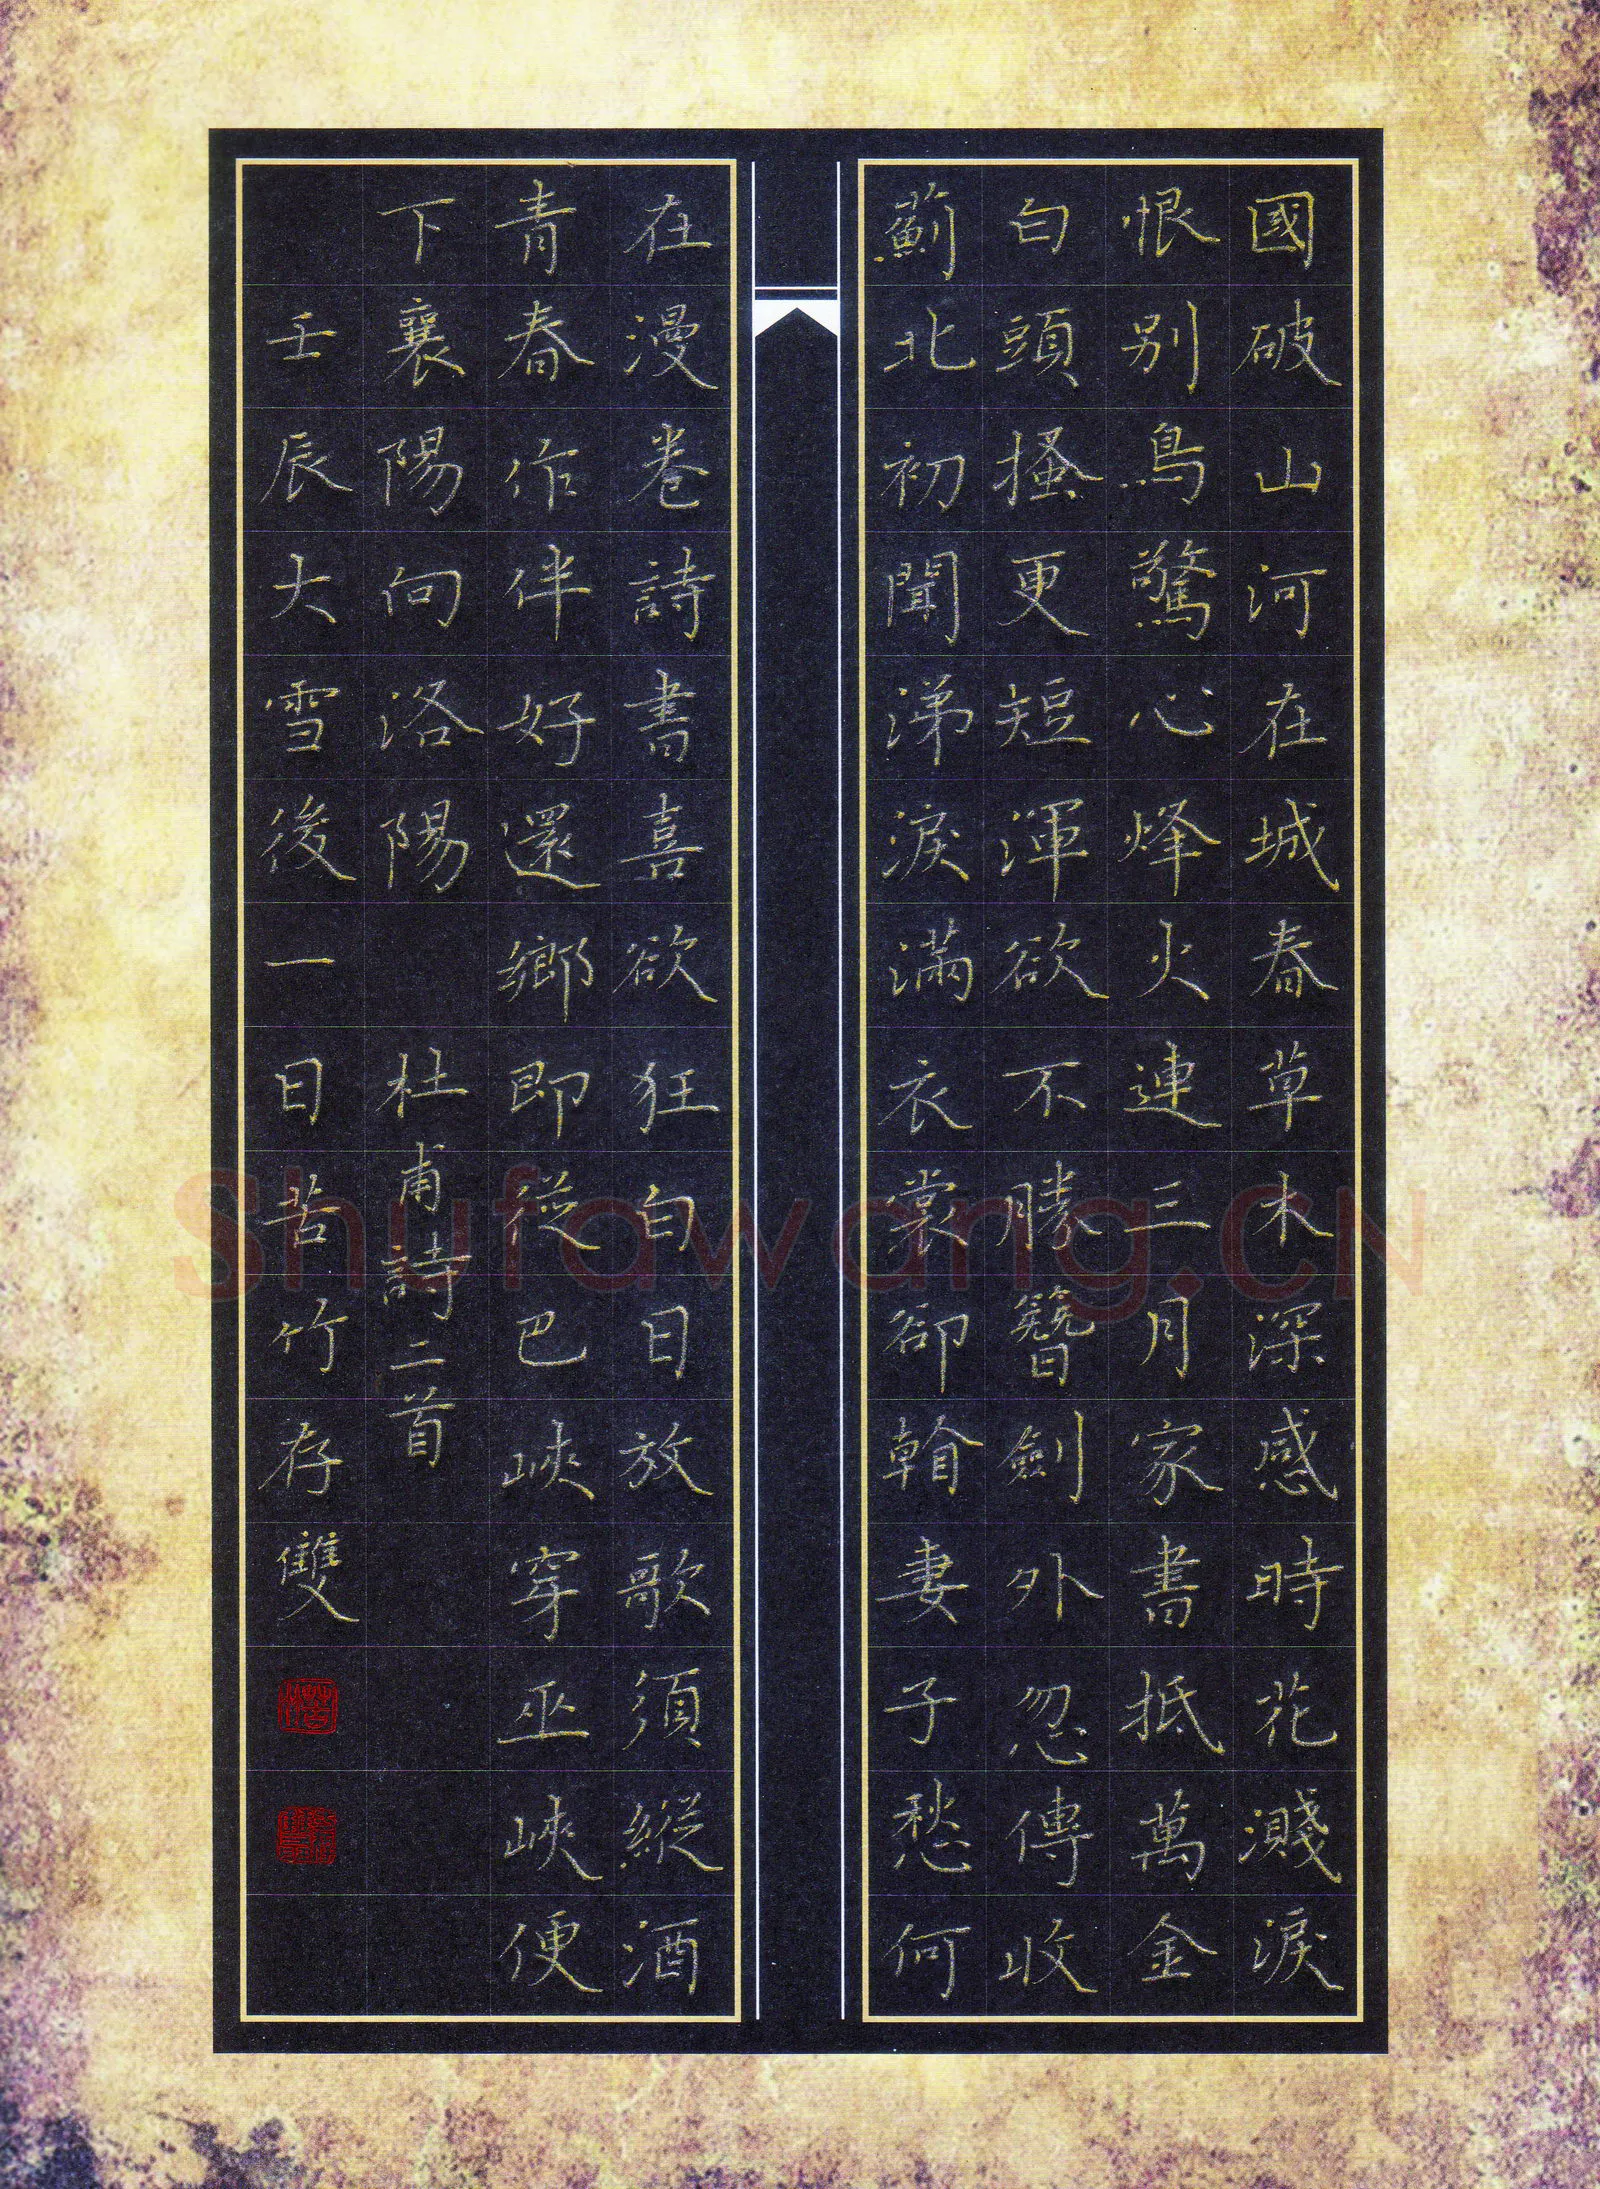 國破山河在城春草木深感時花濺淚
恨別鳥驚心烽火連三月家書抵萬金
白頭搔更短渾欲不勝簪劍外忽傳收
薊北初聞涕淚滿衣裳卻看妻子愁何
在漫卷詩書喜欲狂白日放歌須縱酒
青春作伴好還鄉即從巴峽穿巫峽便
下襄陽向洛陽 杜甫詩二首
壬辰大雪後一日苦竹存雙
Shufawang.CN